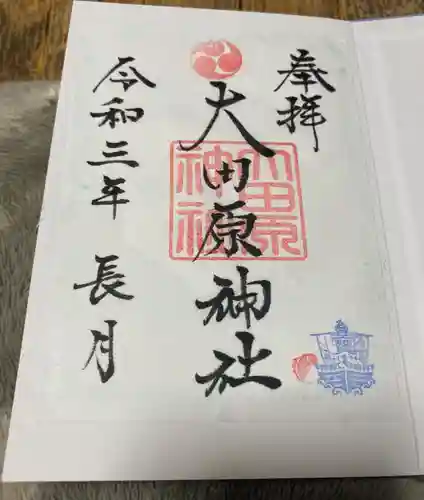 奉拝
大田原神社
大田原神社
令和三年 長月